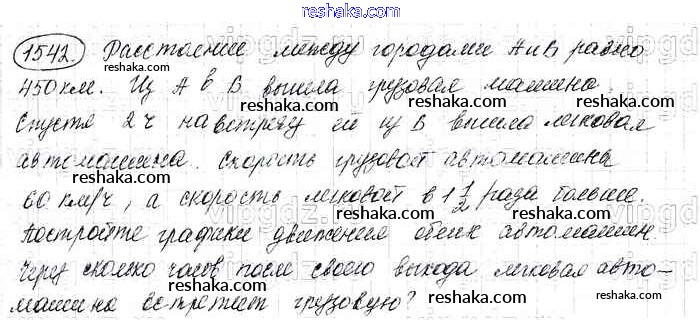 reshaka.ru
1542. Расстояние между городами А и В равно
450 км. Из А в В вышла грузовая машина.
Спустя 2 ч навстречу ей из В вышла легковая
автомашина. Скорость грузовой автомашины
60 км/ч, а скорость легковой в 1 1/2 раза больше.
Постройте графики движения обеих автомашин.
Через сколько часов после своего выхода легковая авто-
машина встретит грузовую?